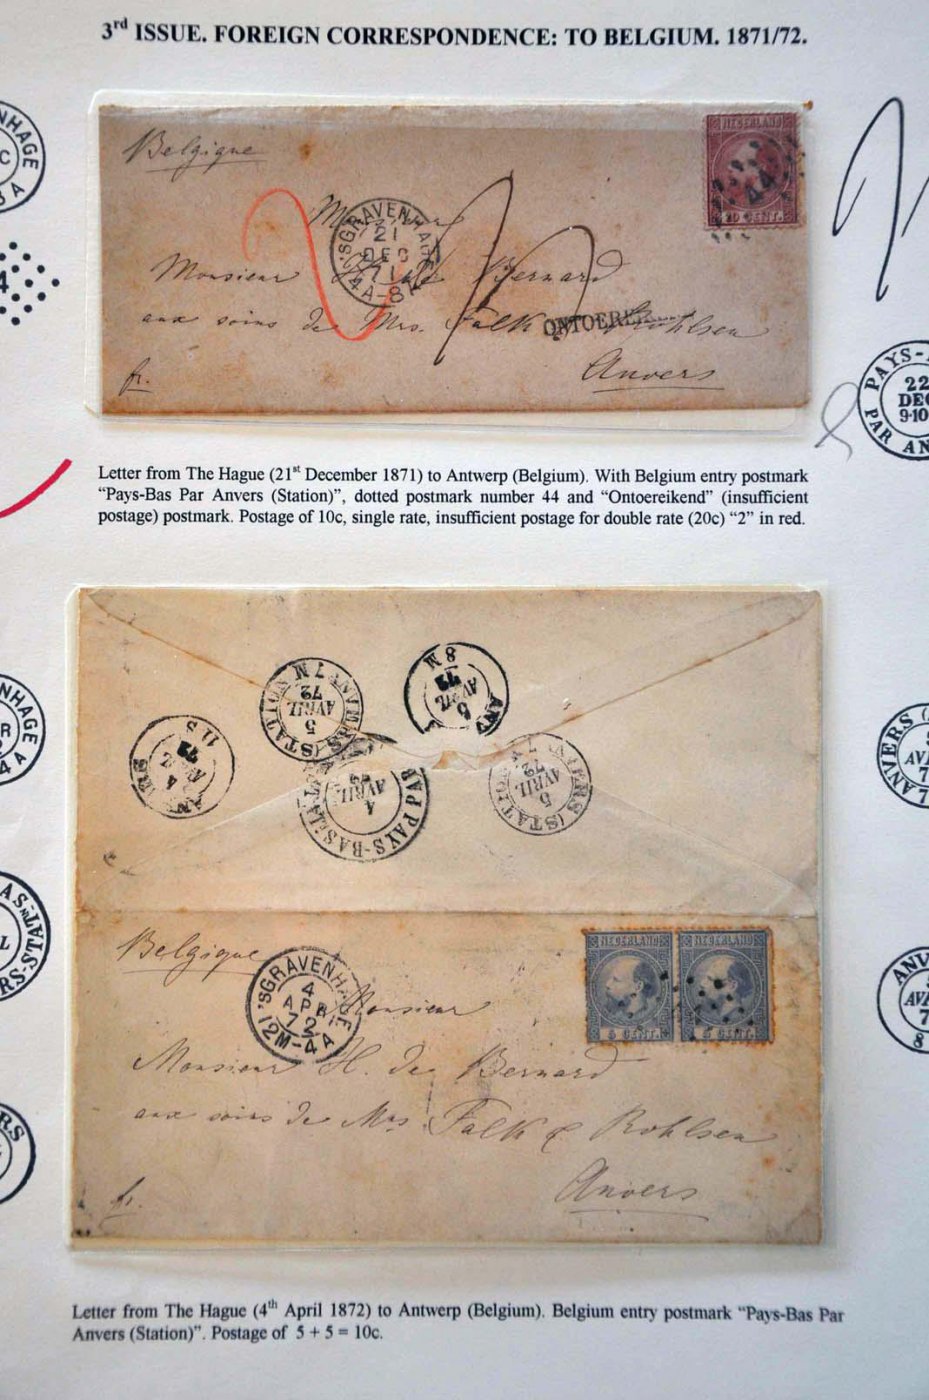 3rd ISSUE. FOREIGN CORRESPONDENCE: TO BELGIUM. 1871/72.
Belgique
NEDERLAND
44
10 CENT.
'SGRAVENHAGE
21
DEC
71
4A-8
Monsieur
Monsieur H. de Bernard
aux soins de Mrs. Falk & Rohlsen
ONTOERE
Anvers
fr.
PAYS-
22
DEC
9-10
PAR AN
Letter from The Hague (21st December 1871) to Antwerp (Belgium). With Belgium entry postmark
“Pays-Bas Par Anvers (Station)”, dotted postmark number 44 and “Ontoereikend” (insufficient
postage) postmark. Postage of 10c, single rate, insufficient postage for double rate (20c) “2” in red.
8 M
5
AVRIL
72
ANVERS (STATION)
7 M
5
AVRIL
72
11 S
4
72
PAYS-BAS
PAR
4
AVRIL
ANVERS (STATION)
7 M
5
AVRIL
72
Belgique
'SGRAVENHAGE
4
APR
72
12M-4A
NEDERLAND NEDERLAND
5 CENT. 5 CENT.
Monsieur
Monsieur H. de Bernard
aux soins de Mrs. Falk & Rohlsen
Anvers
fr.
Letter from The Hague (4th April 1872) to Antwerp (Belgium). Belgium entry postmark “Pays-Bas Par
Anvers (Station)”. Postage of 5 + 5 = 10c.